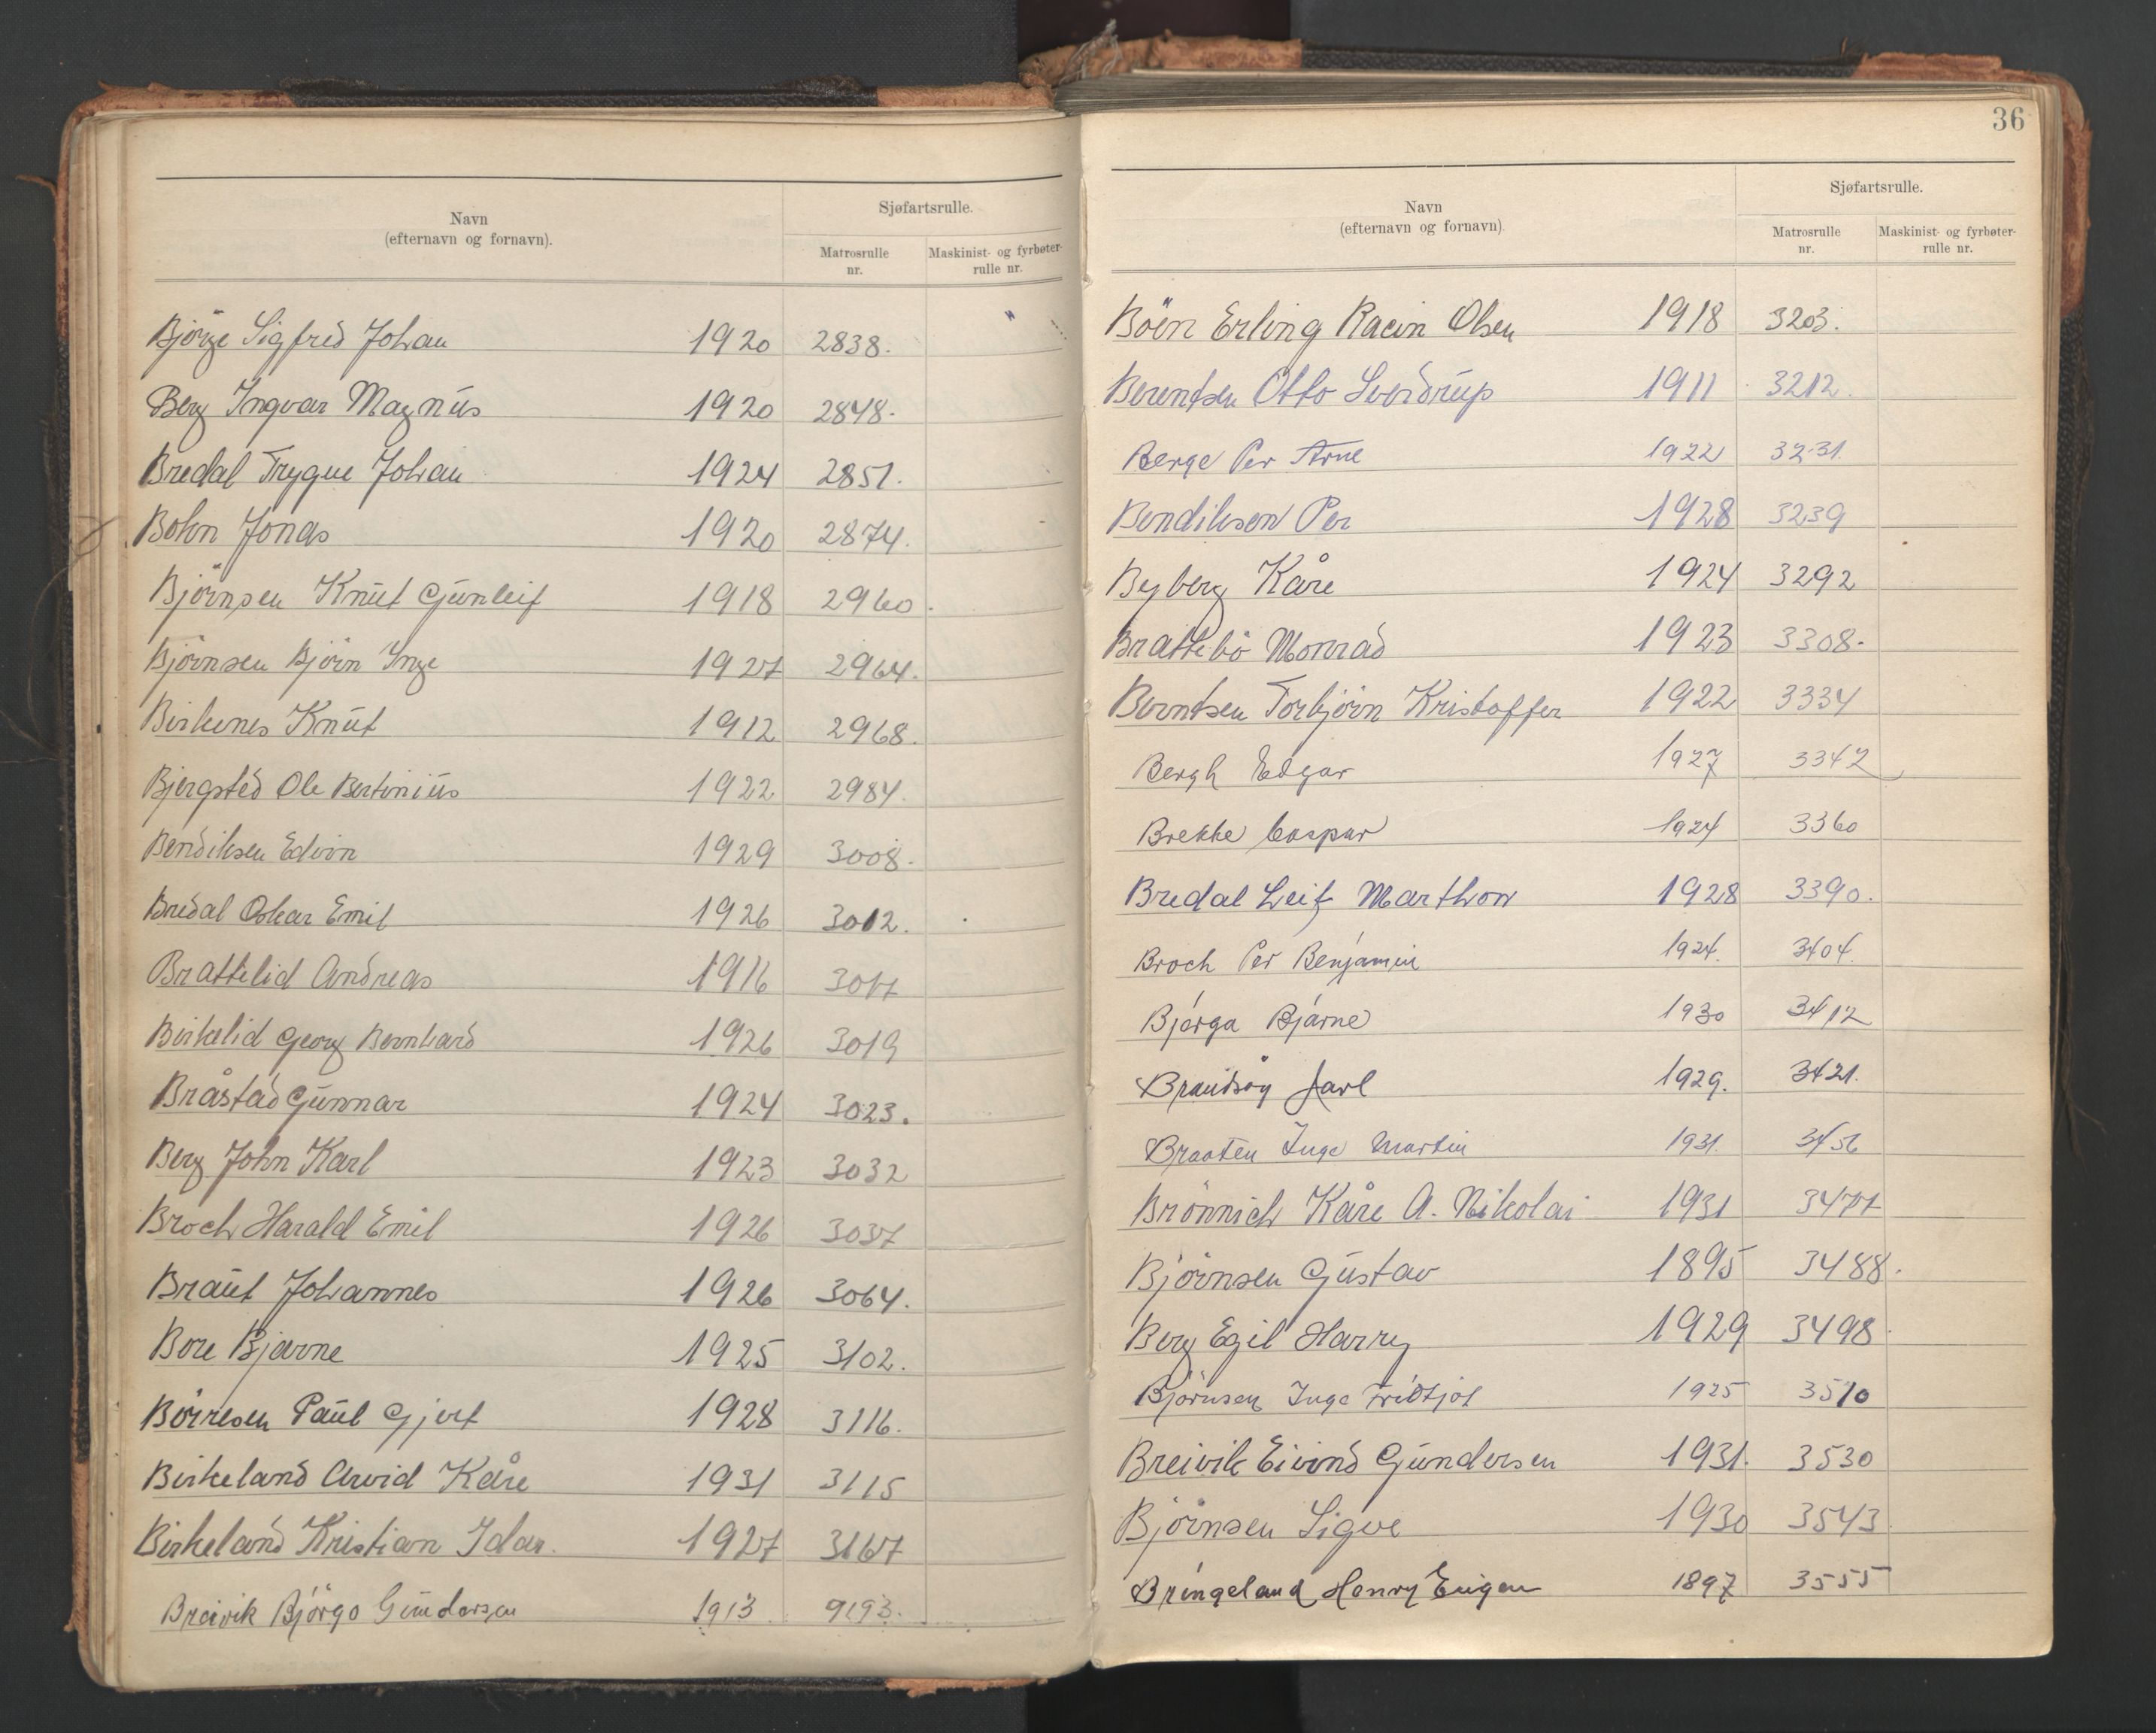 Navn
(efternavn og fornavn).
Sjøfartsrulle.
Matrosrulle nr.
Maskinist- og fyrbøter-rulle nr.
Bjørge Sigfred Johan 1920 2838.
Berg Ingvar Magnus 1920 2848.
Bredal Trygve Johan 1924 2851.
Bohn Jonas 1920 2874.
Bjørnsen Knut Gunleif 1918 2960.
Bjørnsen Bjørn Inge 1927 2964.
Birkenes Knut 1912 2968.
Bjergsted Ole Bertinius 1922 2984.
Bendiksen Edvin 1929 3008.
Bredal Oskar Emil 1926 3012.
Brattelid Andreas 1916 3017
Birkelid Georg Bernhard 1926 3019
Bråstad Gunnar 1924 3023.
Berg John Karl 1923 3032
Broch Harald Emil 1926 3037
Braut Johannes 1926 3064.
Bore Bjarne 1925 3102.
Børresen Paul Gjert 1928 3116.
Birkeland Arvid Kåre 1931 3115
Birkeland Kristian Idar. 1927 3167
Breivik Bjørgo Gundersen 1913 9193.
36
Navn
(efternavn og fornavn).
Sjøfartsrulle.
Matrosrulle nr.
Maskinist- og fyrbøter-rulle nr.
Bøen Erling Racin Olsen 1918 3203.
Berentsen Otto Sverdrup 1911 3212.
Berge Per Arne 1922 3231.
Bendiksen Per 1928 3239
Byberg Kåre 1924 3292
Brattebø Monrad 1923 3308.
Berntsen Torbjørn Kristoffer 1922 3334
Bergh Edgar 1927 3342
Brekke Caspar 1924 3360
Bredal Leif Marthon 1928 3390.
Broch Per Benjamin 1924. 3404.
Bjørga Bjarne 1930 3412
Brandsøy Jarl 1929. 3421.
Braaten Inge Martin 1931. 3456
Brønnich Kåre A. Nikolai 1931 3477
Bjørnsen Gustav 1895 3488.
Berg Egil Harry 1929 3498.
Bjørnsen Inge Fridtjof 1925 3510
Breivik Eivind Gundersen 1931. 3530
Bjørnsen Sigve 1930 3543.
Bringeland Henry Eugen 1897 3555